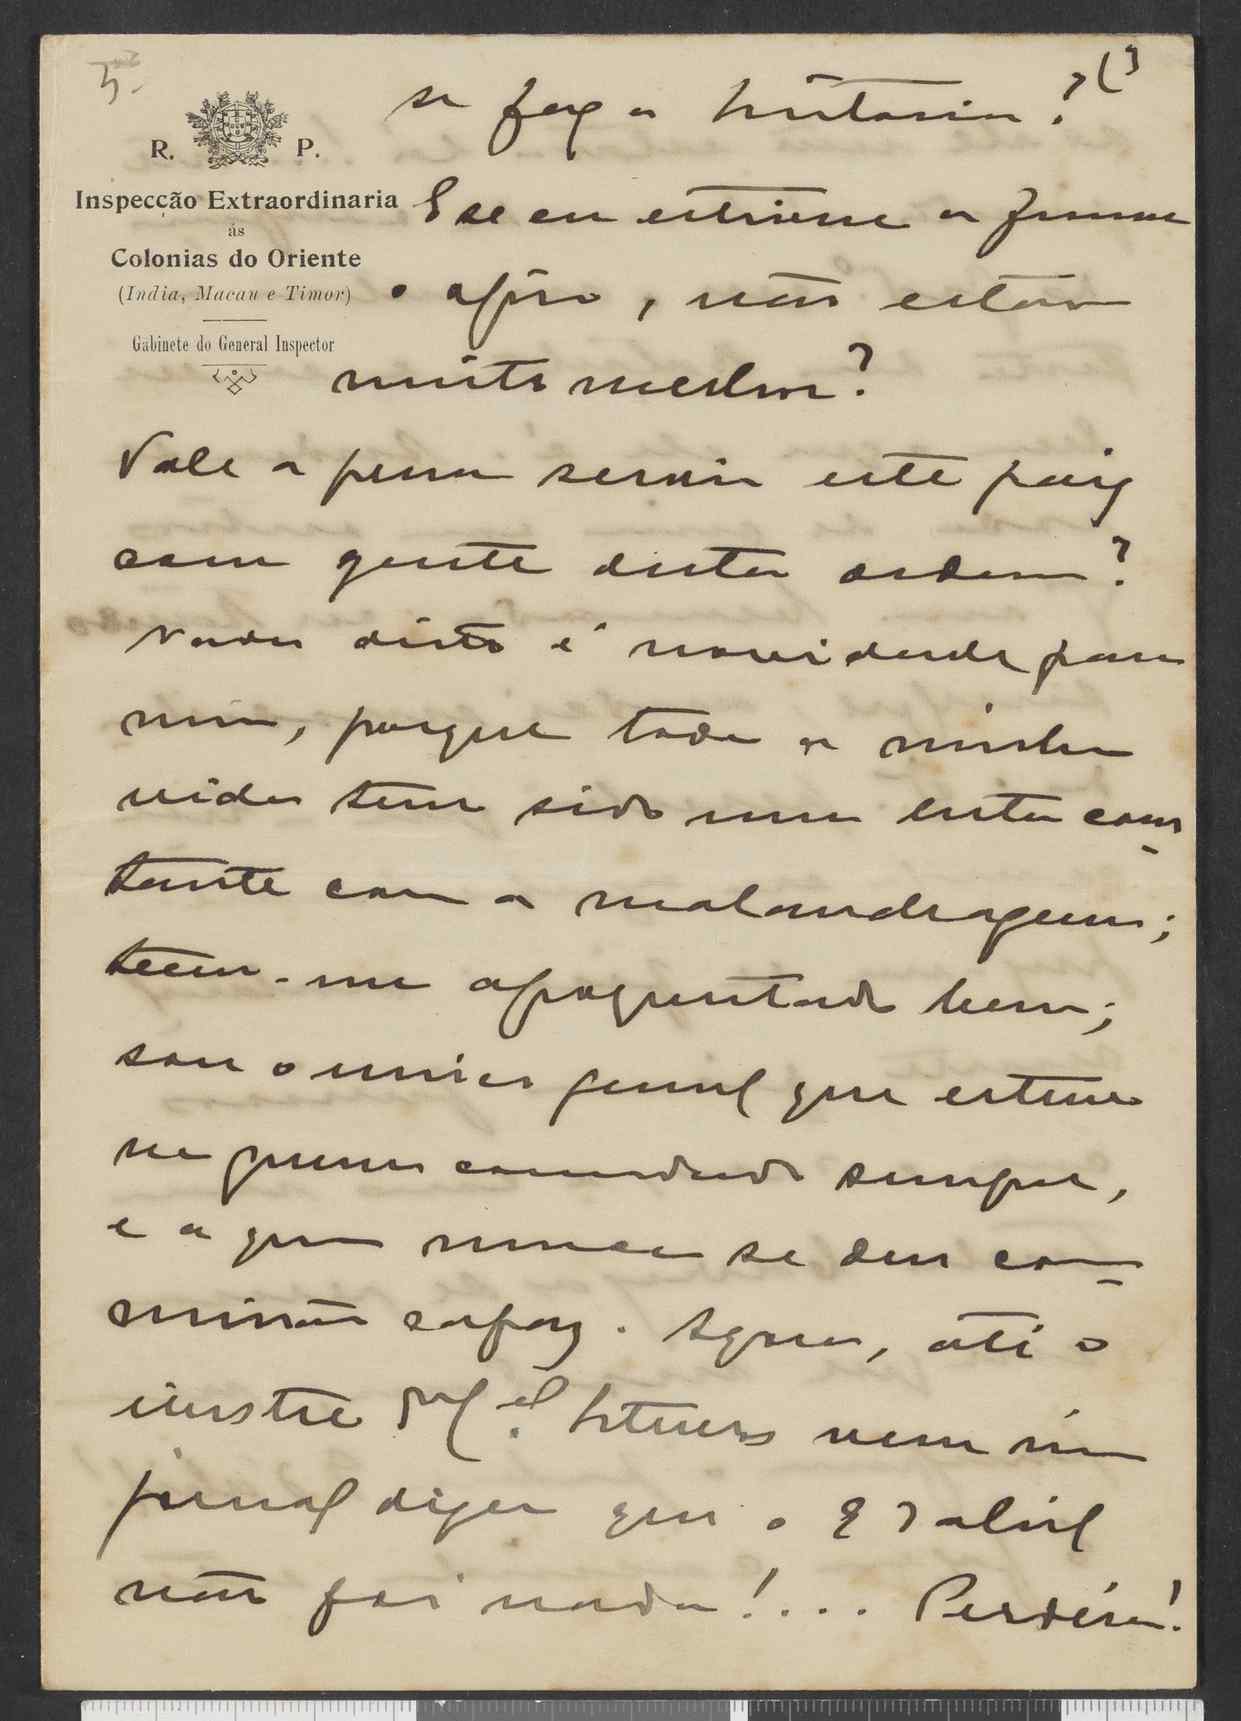 5ª
R. P.
Inspecção Extraordinaria
ás
Colonias do Oriente
(India, Macau e Timor)
Gabinete do General Inspector
se faz a historia?
E se eu estivesse a fumar
o ópio, não estava
muito melhor?
Vale a pena servir este paiz
com gente desta ordem?
Nada disto é novidade para
mim, porque toda a minha
vida tem sido uma luta cons-
tante com a malandragem;
teem-me apoquentado bem;
sou o unico general que esteve
na guerra comandando sempre,
e a quem nunca se deu co-
missão capaz. Agora, até o
ilustre vem n'um
jornal dizer que o 9 d'abril
não foi nada!...